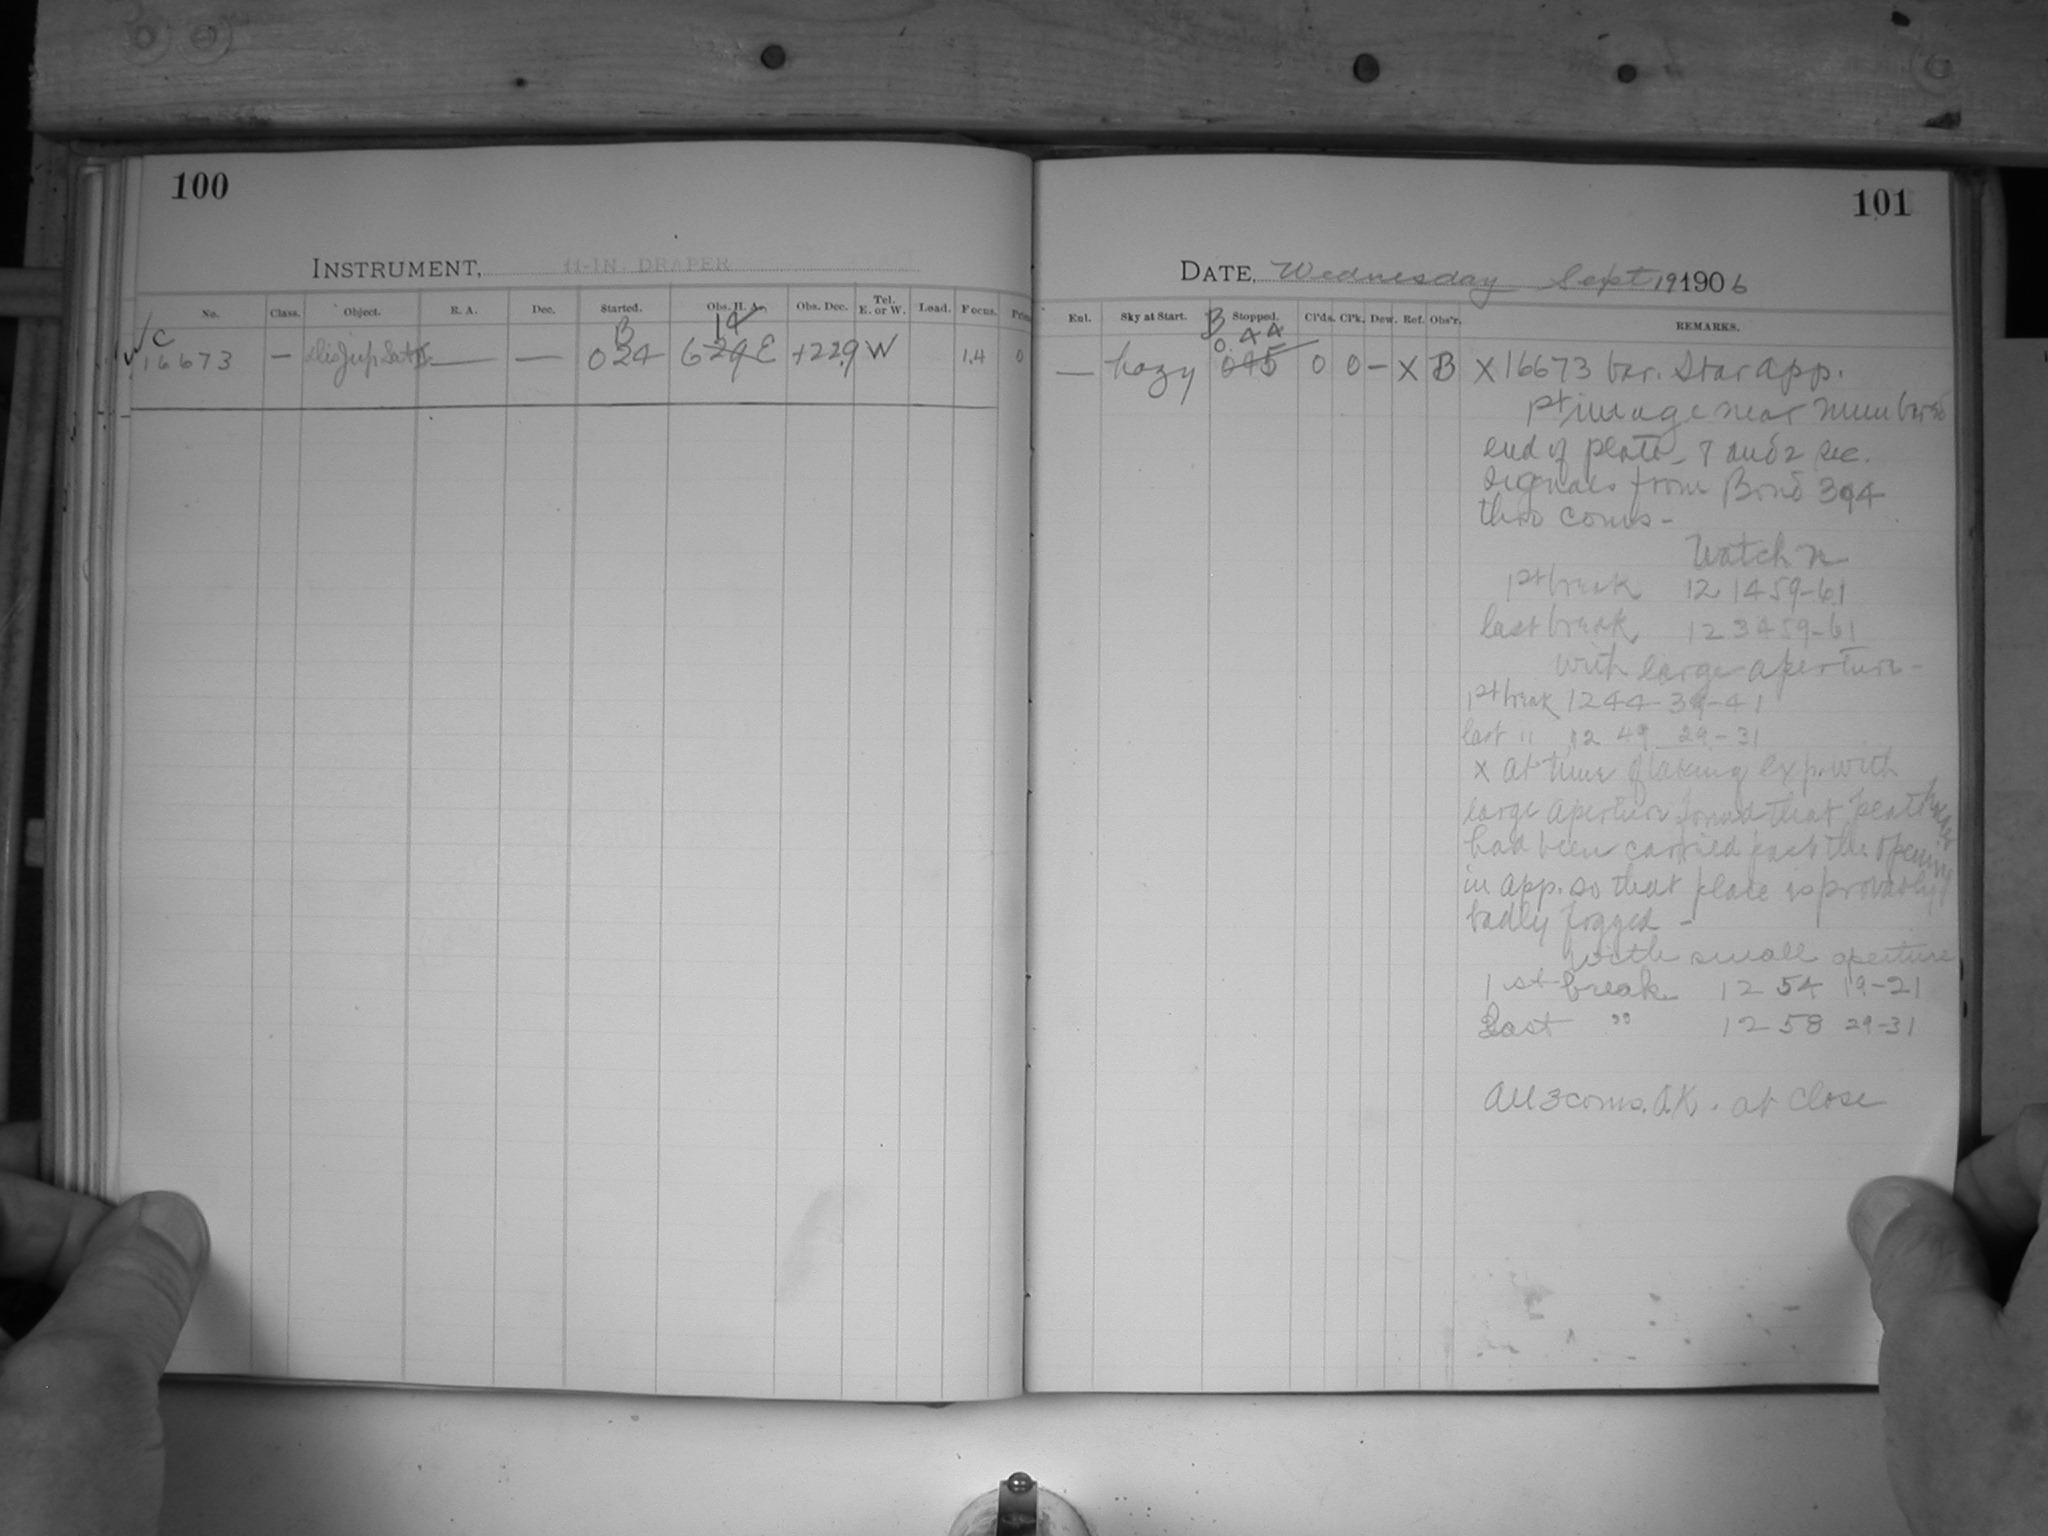 100
INSTRUMENT, 11-IN. DRAPER
No. Class. Object. R. A. Dec. Started. Obs. H. A. Obs. Dec. Tel. E. or W. Load. Focus.
C 16673 — Jup. Sat. — — B 024 629 E +22.9 W 1.4 0
101
DATE, Wednesday Sept 19 1906
Enl. Sky at Start. Stopped. Cl'ds. Cl'k. Dew. Ref. Obs'r. REMARKS.
B 0.44
— hazy 045 0 0 — X B X 16673 bar. Star app.
pt image near numbered
end of plate - 7 and 2 sec.
signals from Bond 394
thro coms -
Watch n
1st break 12 14 59-61
last break 12 34 59-61
with large aperture -
1st break 12 44 39-41
last " 12 49 29-31
x at time of taking exp. with
large aperture found that plateholder
had been carried past the opening
in app. so that plate is probably
badly fogged -
with small aperture
1st break 12 54 19-21
Last " 12 58 29-31
All 3 coms. O.K. at close